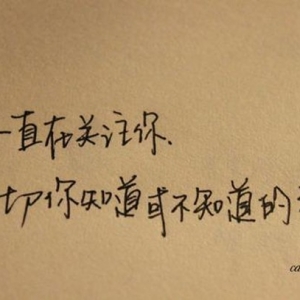 一直在关注你.
切你知道或不知道的
ca